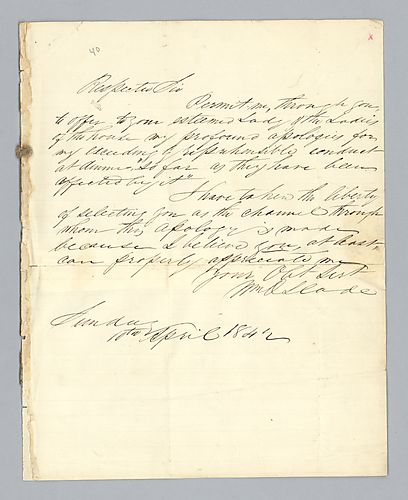 40
x
Respected Sir
Permit me, through you
to offer to your esteemed Lady & the Ladies
of the house my profound apologies for
my exceedingly reprehensible conduct
at dinner "so far as they have been
affected by it"
I have taken the liberty
of selecting you as the channel through
whom this apology is made
because I believe you, at least
can properly appreciate me
Your Obt Servt
Wm
Sunday
10th April 1842